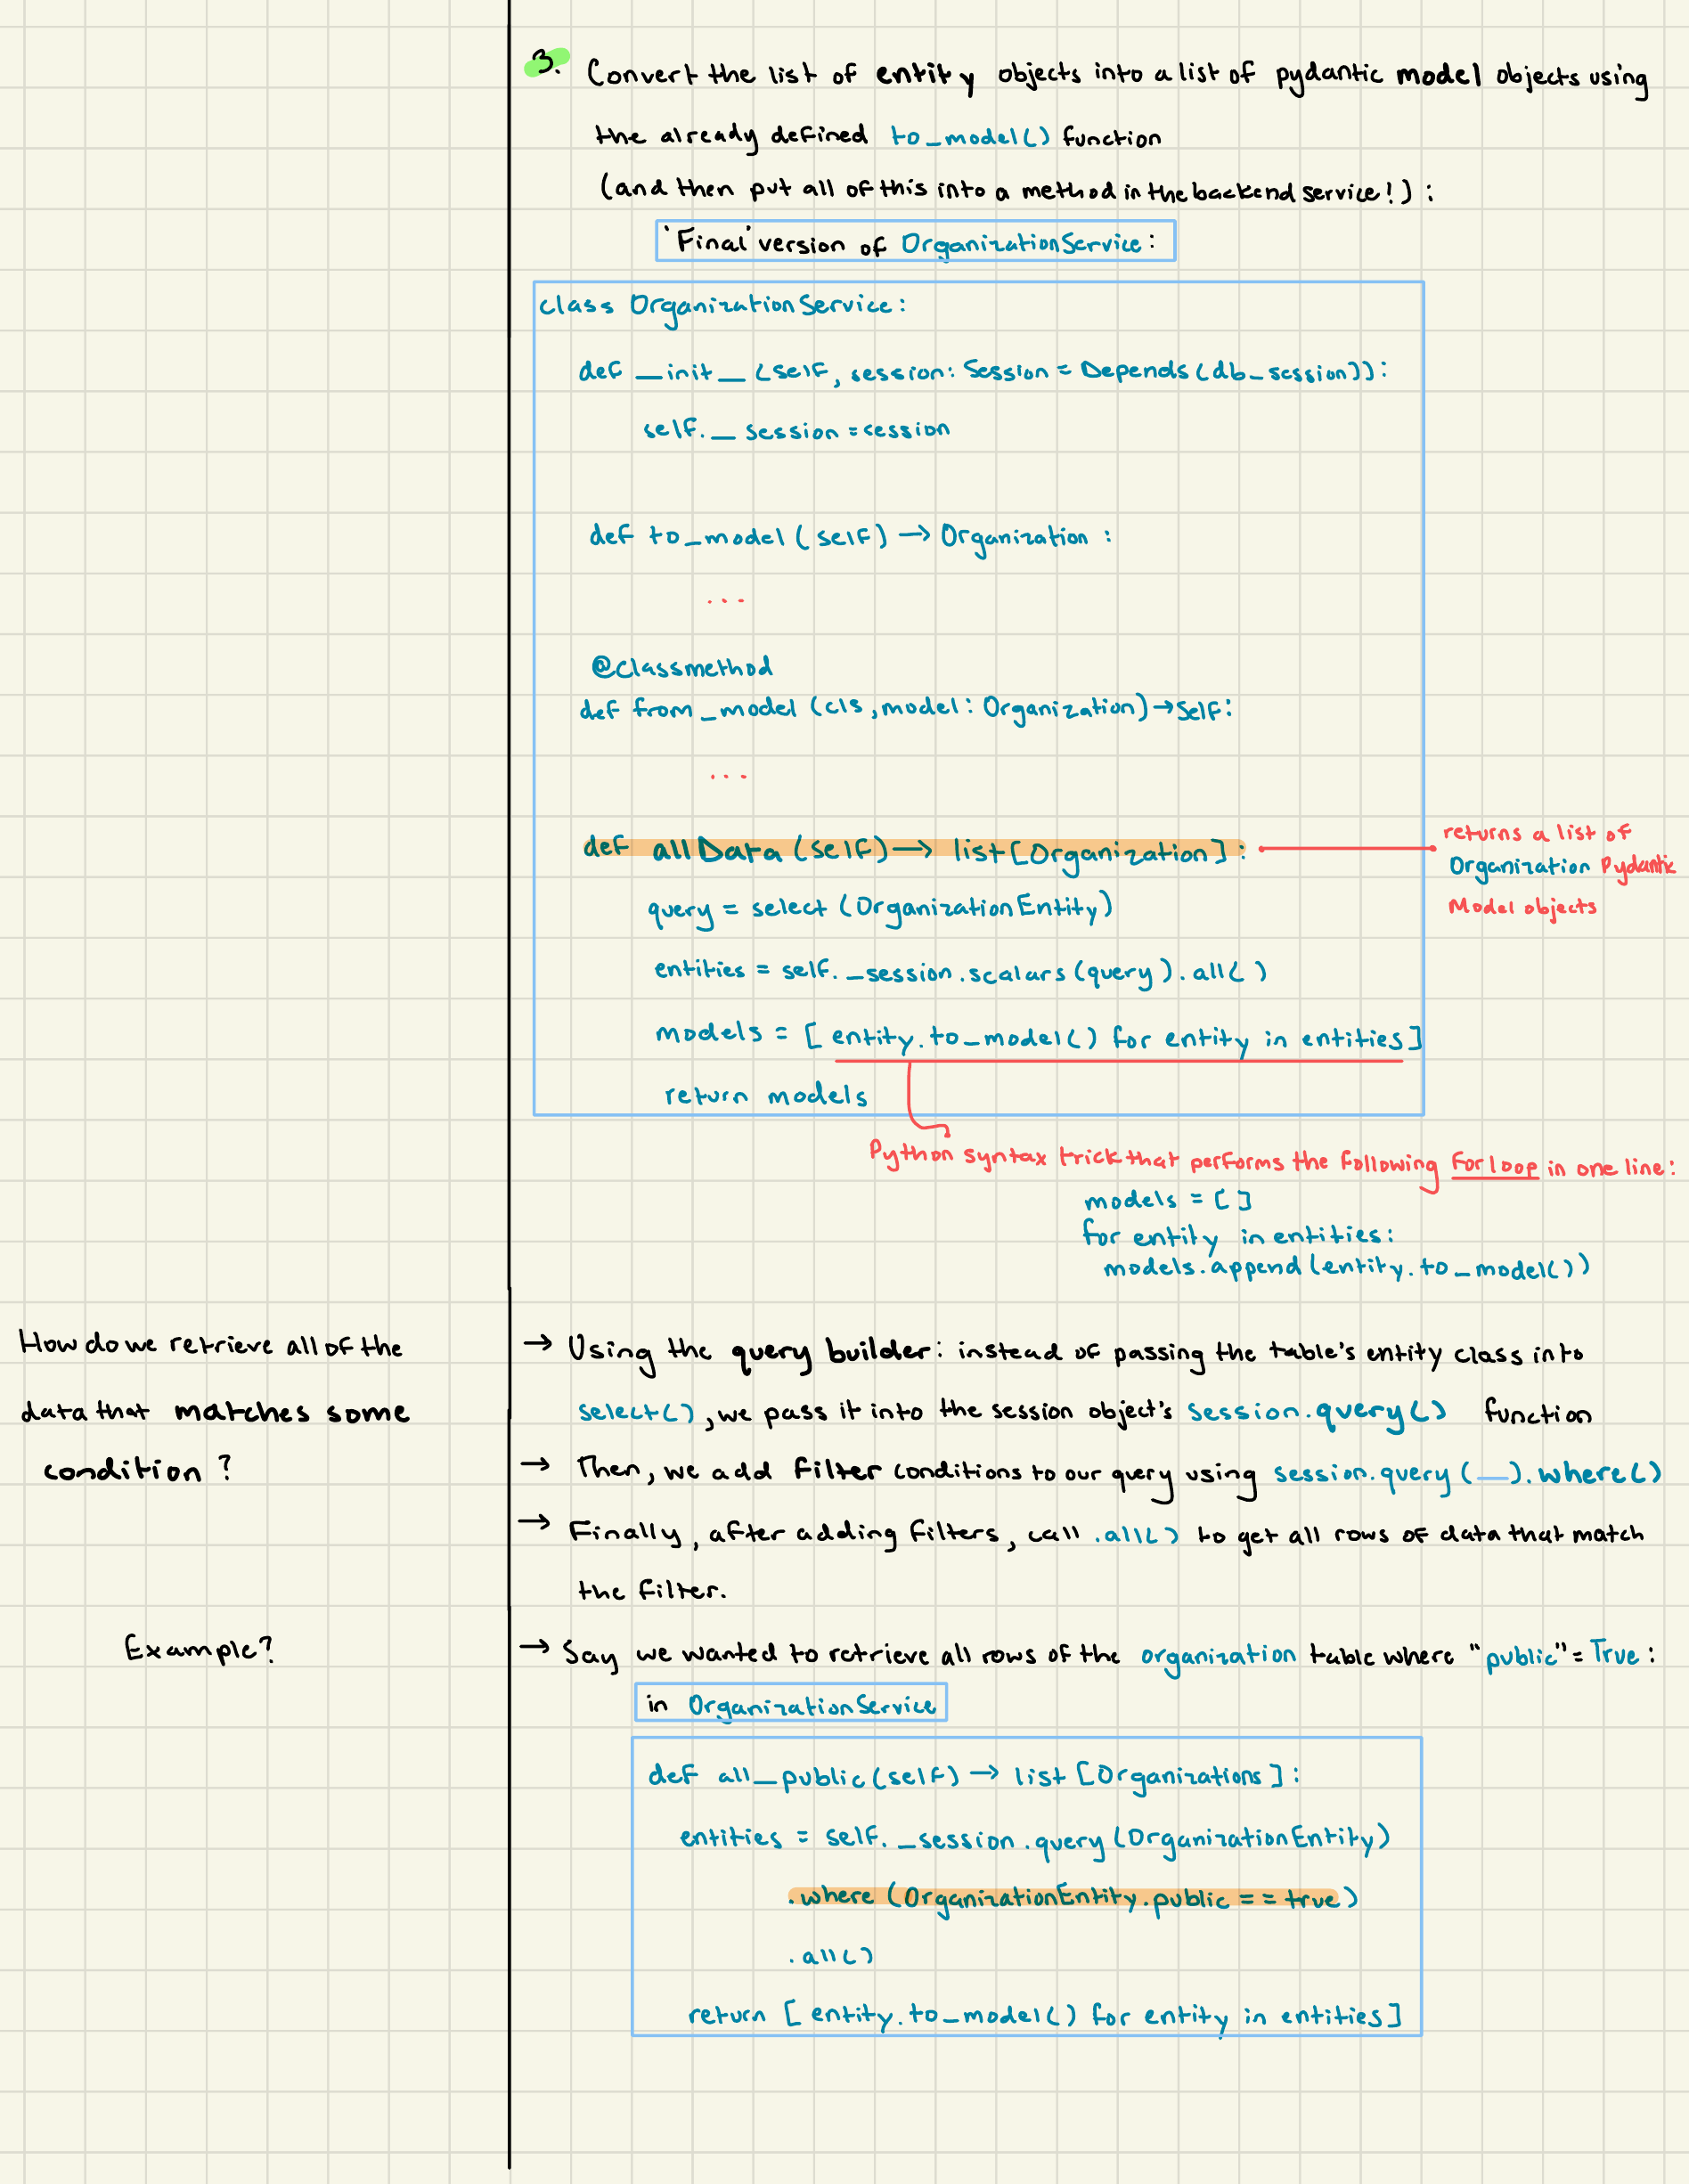 3. Convert the list of entity objects into a list of pydantic model objects using
the already defined to_model() function
(and then put all of this into a method in the backend service!):
'Final' version of OrganizationService:
class OrganizationService:
def __init__(self, session: Session = Depends(db_session)):
self._session = session
def to_model(self) → Organization:
...
@classmethod
def from_model(cls, model: Organization) → Self:
...
def allData(self) → list[Organization]:
returns a list of
Organization Pydantic
Model objects
query = select(OrganizationEntity)
entities = self._session.scalars(query).all()
models = [entity.to_model() for entity in entities]
return models
Python syntax trick that performs the following for loop in one line:
models = []
for entity in entities:
models.append(entity.to_model())
How do we retrieve all of the
data that matches some
condition?
→ Using the query builder: instead of passing the table's entity class into
select(), we pass it into the session object's session.query() function
→ Then, we add filter conditions to our query using session.query(__).where()
→ Finally, after adding filters, call .all() to get all rows of data that match
the filter.
Example?
→ Say we wanted to retrieve all rows of the organization table where "public" = True:
in OrganizationService
def all_public(self) → list[Organizations]:
entities = self._session.query(OrganizationEntity)
.where(OrganizationEntity.public == true)
.all()
return [entity.to_model() for entity in entities]